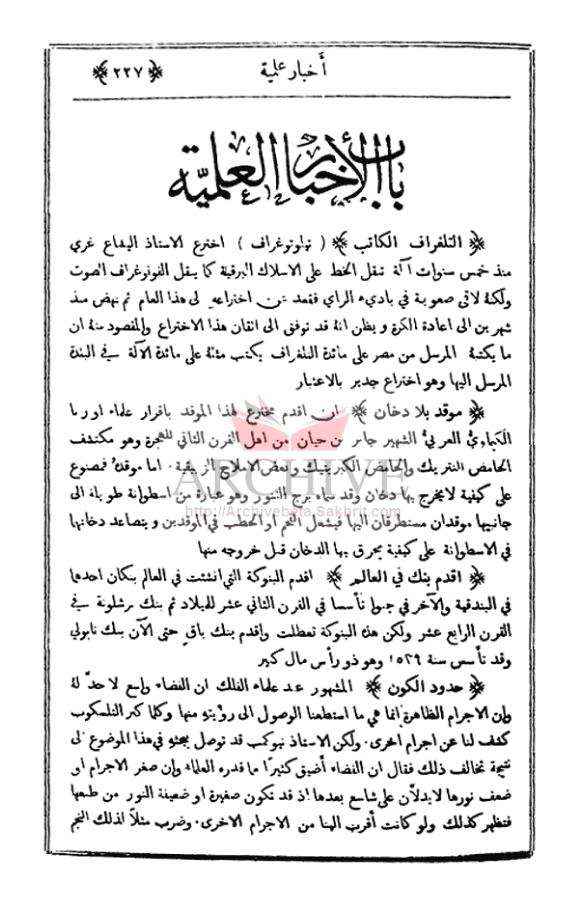 أخبار علمية ﴿ ٢٢٧ ﴾
باب الأخبار العلمية
﴿ التلغراف الكاتب ﴾ ( تولوتوغراف ) اخترع الاستاذ اليشاع غري
منذ خمس سنوات آلة تنقل الخط على الاسلاك البرقية كما ينقل الفونوغراف الصوت
ولكنهُ لاقى صعوبة في باديء الراي فقعد عن اختراعهِ الى هذا العام ثم نهض منذ
شهرين الى اعادة الكرة ويظن انهُ قد توفق الى اتقان هذا الاختراع والمقصود منهُ ان
ما يكتبهُ المرسل من مصر على مائدة التلغراف يكتب مثلهُ على مائدة الآلة في البلدة
المرسل اليها وهو اختراع جدير بالاعتبار
﴿ موقد بلا دخان ﴾ ان اقدم مخترع لهذا الموقد باقرار علماء اوربا
الكيماوي العربي الشهير جابر بن حيان من اهل القرن الثاني للهجرة وهو مكتشف
الحامض النتريك والحامض الكبريتيك وبعض الاملاح الزيبقية . اما موقدهُ فمصنوع
على كيفية لا يخرج بها دخان وقد سماه برج التنور وهو عبارة عن اسطوانة طويلة الى
جانبيها موقدان مستطرقان اليها فيشعل الفحم او الحطب في الموقدين ويتصاعد دخانها
في الاسطوانة على كيفية يحرق بها الدخان قبل خروجه منها
﴿ اقدم بنك في العالم ﴾ اقدم البنوكة التي انشئت في العالم بنكان احدهما
في البندقية والآخر في جنوا تأسسا في القرن الثاني عشر للميلاد ثم بنك برشلونة في
القرن الرابع عشر ولكن هذه البنوكة تعطلت واقدم بنك باقٍ حتى الآن بنك نابولي
وقد تأسس سنة ١٥٣٩ وهو ذو رأس مال كبير
﴿ حدود الكون ﴾ المشهور عند علماء الفلك ان الفضاء واسع لا حدّ لهُ
وان الاجرام الظاهرة انما هي ما استطعنا الوصول الى رؤيتهِ منها وكلما كبر التلسكوب
كشف لنا عن اجرام اخرى . ولكن الاستاذ نيوكمب قد توصل ببحثهِ في هذا الموضوع الى
نتيجة تخالف ذلك فقال ان الفضاء أضيق كثيرًا ما قدره العلماء وإن صغر الاجرام او
ضعف نورها لا يدلّان على شاسع بعدها اذ قد تكون صغيرة او ضعيفة النور من طبعها
فتظهر كذلك ولو كانت أقرب الينا من الاجرام الاخرى . وضرب مثلاً لذلك النجم
ARCHIVE
http://Archivebeta.Sakhrit.com